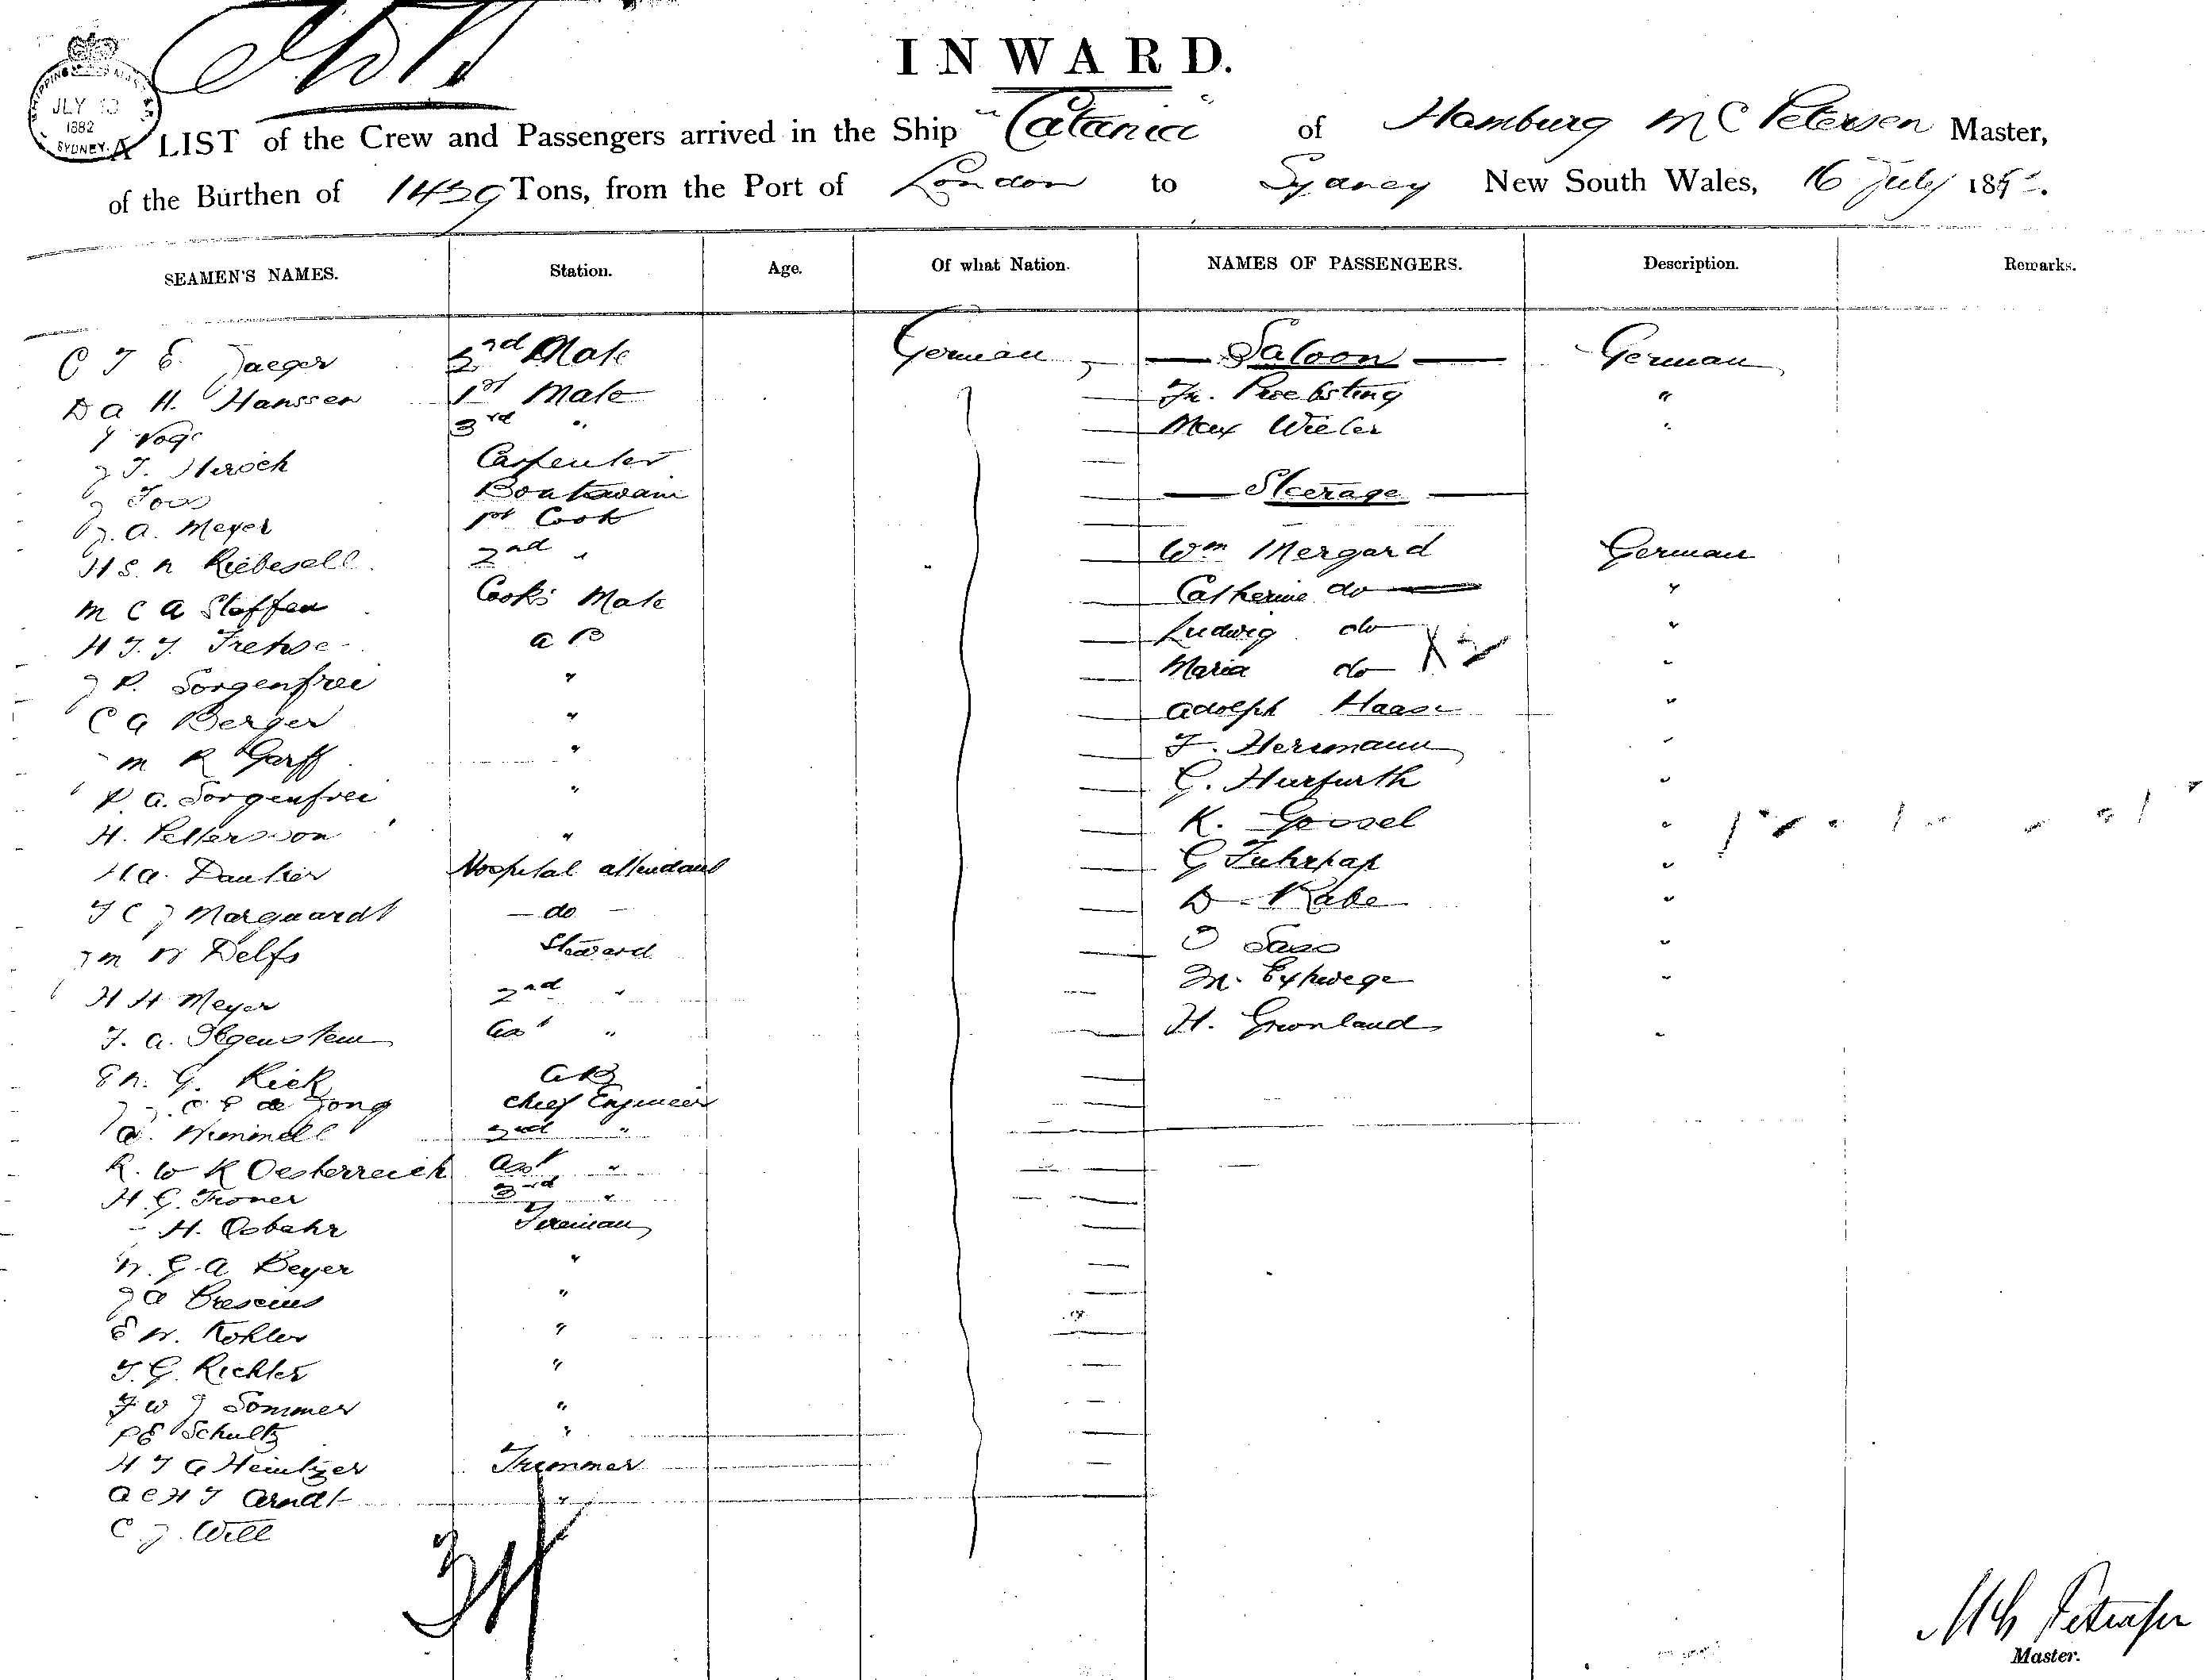 INWARD.
SHIPPING
JLY 13
1882
SYDNEY.
A LIST of the Crew and Passengers arrived in the Ship "Catania" of Hamburg M C Petersen Master,
of the Burthen of 1439 Tons, from the Port of London to Sydney New South Wales, 16 July 188
SEAMEN'S NAMES. Station. Age. Of what Nation. NAMES OF PASSENGERS. Description. Remarks.
C J E Jaeger 2nd Mate German Saloon German
D A H. Hanssen 1st Mate Fr. Proebsting "
3rd " Max Wieler "
J. Hirsch Carpenter
Boatswain Steerage
J. A. Meyer 1st Cook
H S N Riebesell 2nd " Wm Mergard German
M C A Steffen Cook's Mate Catherine do "
H J. J. Frehse A B Ludwig do "
J P. Sorgenfrei " Maria do "
C A Berger " Adolph Haase "
M R Garff " F. Herrmann "
P. A. Sorgenfrei " G. Hurfurth "
H. Pettersson " K. Gossel "
H. A. Danker Hospital attendant G "
J C J Marquardt do D Rabe "
J M N Delfs Steward "
H H Meyer 2nd " M. "
J. A. Ilgenstein Asst " H. Gronland "
E N. G. Kiek AB
C E de Jong Chief Engineer
A. Himmell 2nd "
R. W K Oesterreich Asst "
H. G. Troner 3rd "
H. Osbahr Fireman
N. G. A. Beyer "
J A "
E N. Kohler "
J. G. Richter "
F W J Sommer "
P E Schultz "
H J A Heintzer Trimmer
A C H J Arndt "
C. J. Will
34
M C Petersen
Master.